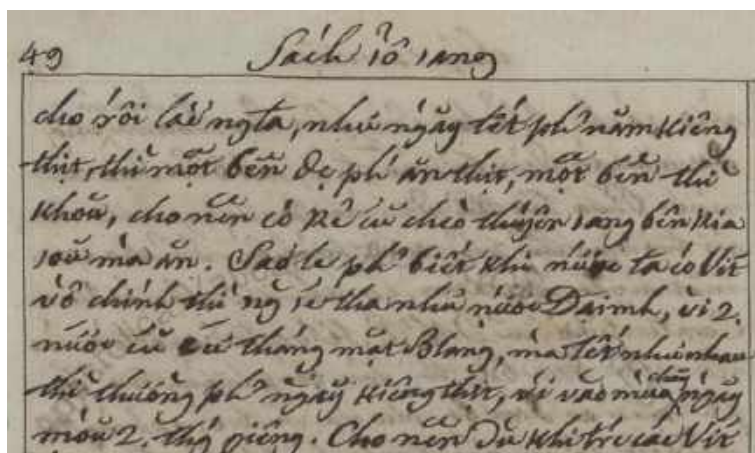 49 Sách sổ sang
cho rồi lắc ngta, như ngày tết phỉ năm kiêng
thịt, thì một bên đ phỉ ăn thịt, một bên thì
khoũ, cho nên có kẻ cũ chèo thŷên sang bên kia
soũ mà ăn. Sao le phỉ biết khi nước ta có Vít
vồ chính thì ng sẽ tha như nước Daimh, vì 2.
nước cũ cứ tháng mặt Blang, mà tết như nhau
thì thường phỉ ngày kiêng thịt, vì vào mùa chay ngày
moũ 2. thg giêng. Cho nên dù khi trc các Vít